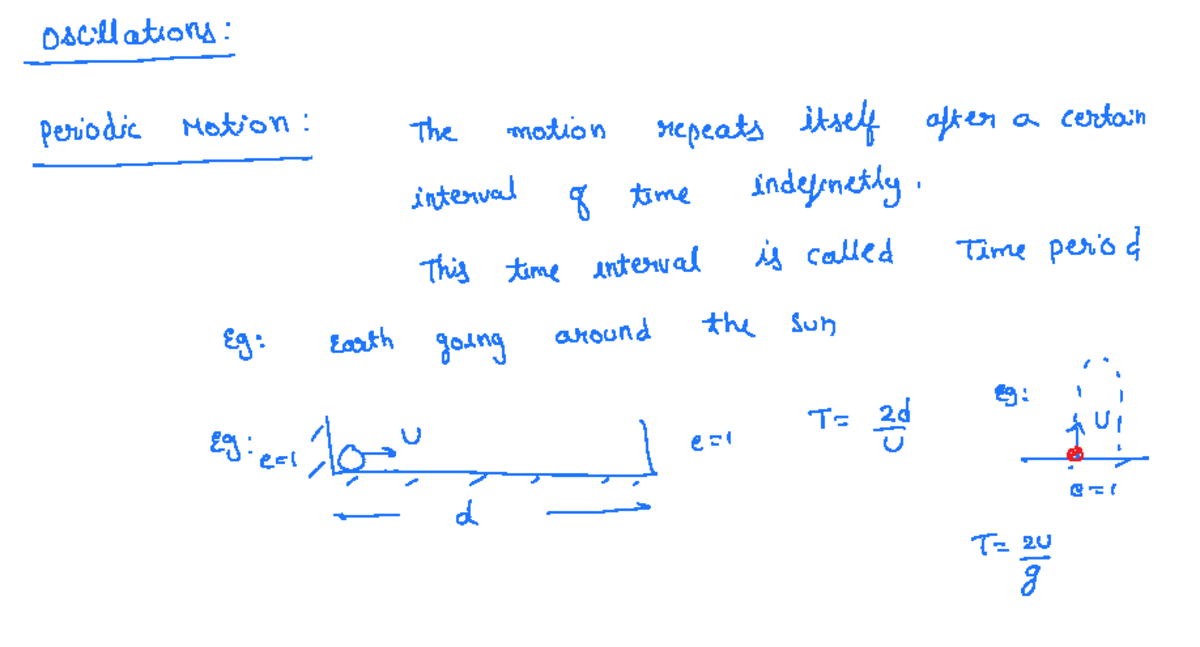 Oscillations:
Periodic Motion: The motion repeats itself after a certain
interval of time indefinetly.
This time interval is called Time period
Eg: Earth going around the sun
Eg: e=1 U e=1 T= 2d/U
d
Eg: U
e=1
T= 2U/g